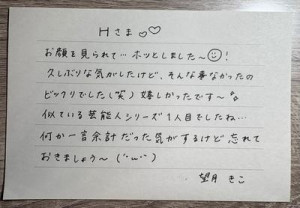 Hさま♡♡
お顔を見られて…ホッとしました〜☺!
久しぶりな気がしたけど、そんな事なかったの
ビックリでした(笑)嬉しかったです〜
似ている芸能人シリーズ1人目でしたね…
何か一言余計だった気がするけど忘れて
おきましょう〜(˘ω˘)
望月 きこ